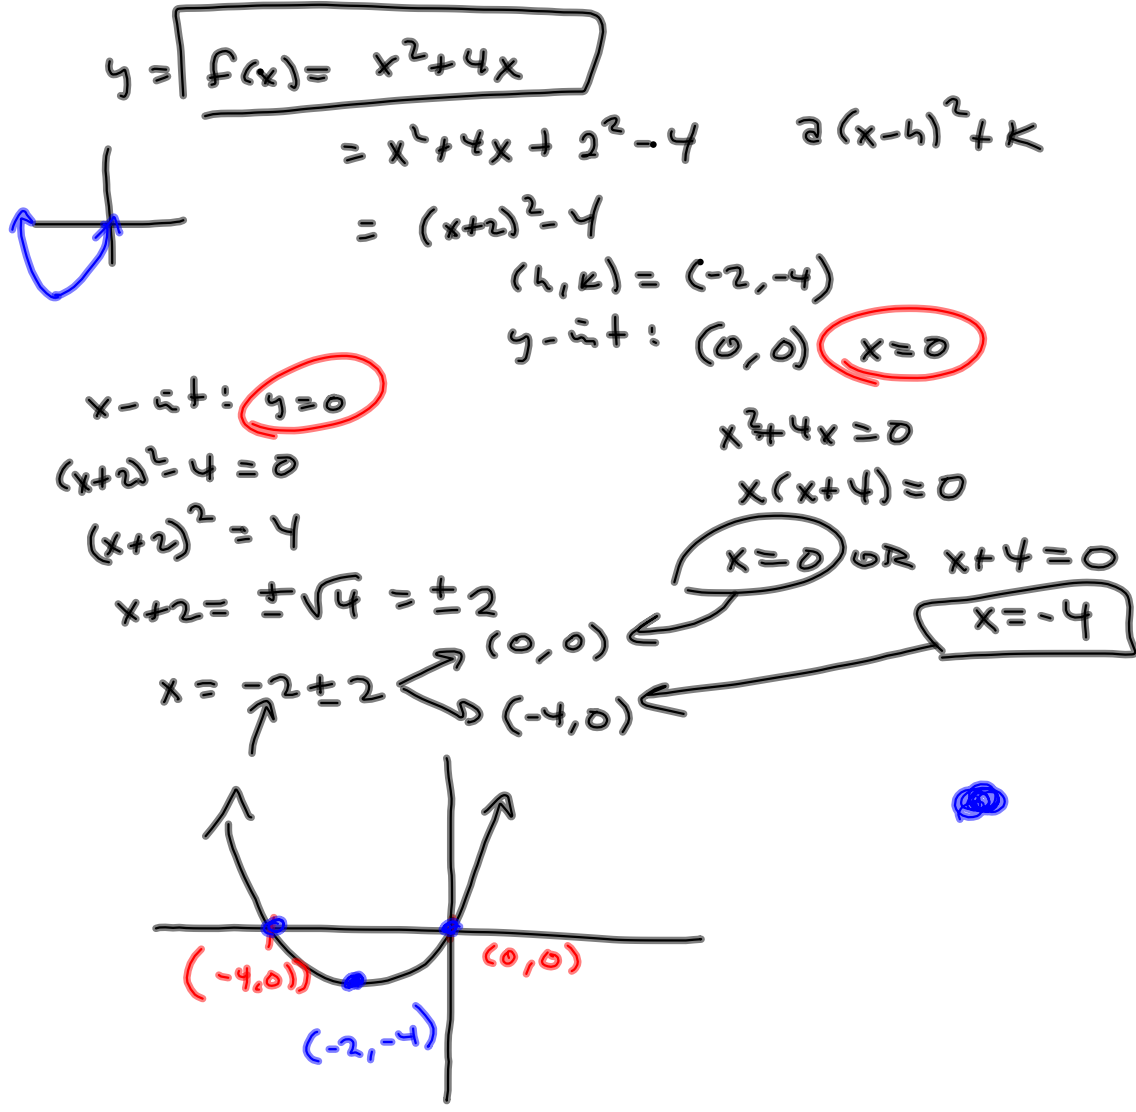 y = f(x) = x² + 4x
= x² + 4x + 2² - 4
a(x-h)² + k
= (x+2)² - 4
(h, k) = (-2, -4)
y-int: (0, 0) x = 0
x-int: y = 0
x² + 4x = 0
(x+2)² - 4 = 0
x(x+4) = 0
(x+2)² = 4
x = 0 OR x+4 = 0
x+2 = ±√4 = ±2
x = -4
(0, 0)
x = -2 ± 2
(-4, 0)
(-4, 0))
(0, 0)
(-2, -4)